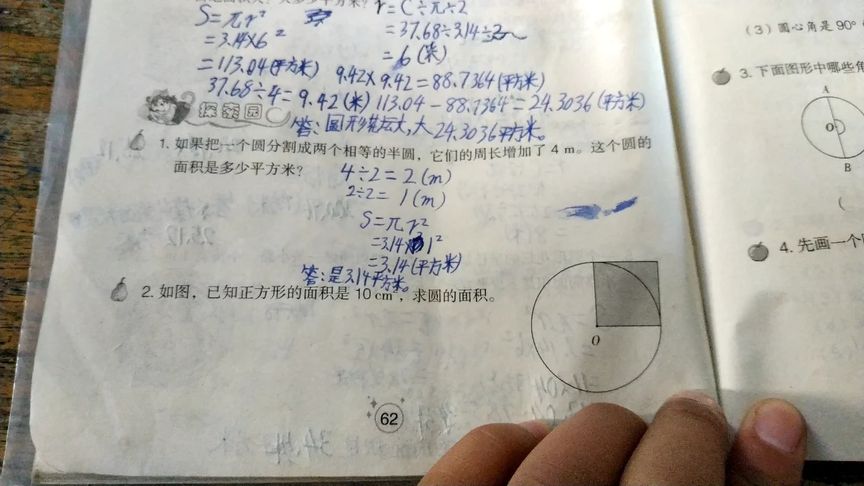 r=C÷π÷2
S=πr²
=37.68÷3.14÷2
=3.14×6²
=6(米)
=113.04(平方米) 9.42×9.42=88.7364(平方米)
37.68÷4=9.42(米) 113.04-88.7364=24.3036(平方米)
探索园
答:圆形花坛大,大24.3036平方米。
1. 如果把一个圆分割成两个相等的半圆,它们的周长增加了 4 m。这个圆的
面积是多少平方米?
4÷2=2(m)
2÷2=1(m)
S=πr²
=3.14×1²
=3.14(平方米)
答:是3.14平方米。
2. 如图,已知正方形的面积是 10 cm²,求圆的面积。
O
62
(3)圆心角是 90°
3. 下面图形中哪些角
A
O
B
(
4. 先画一个